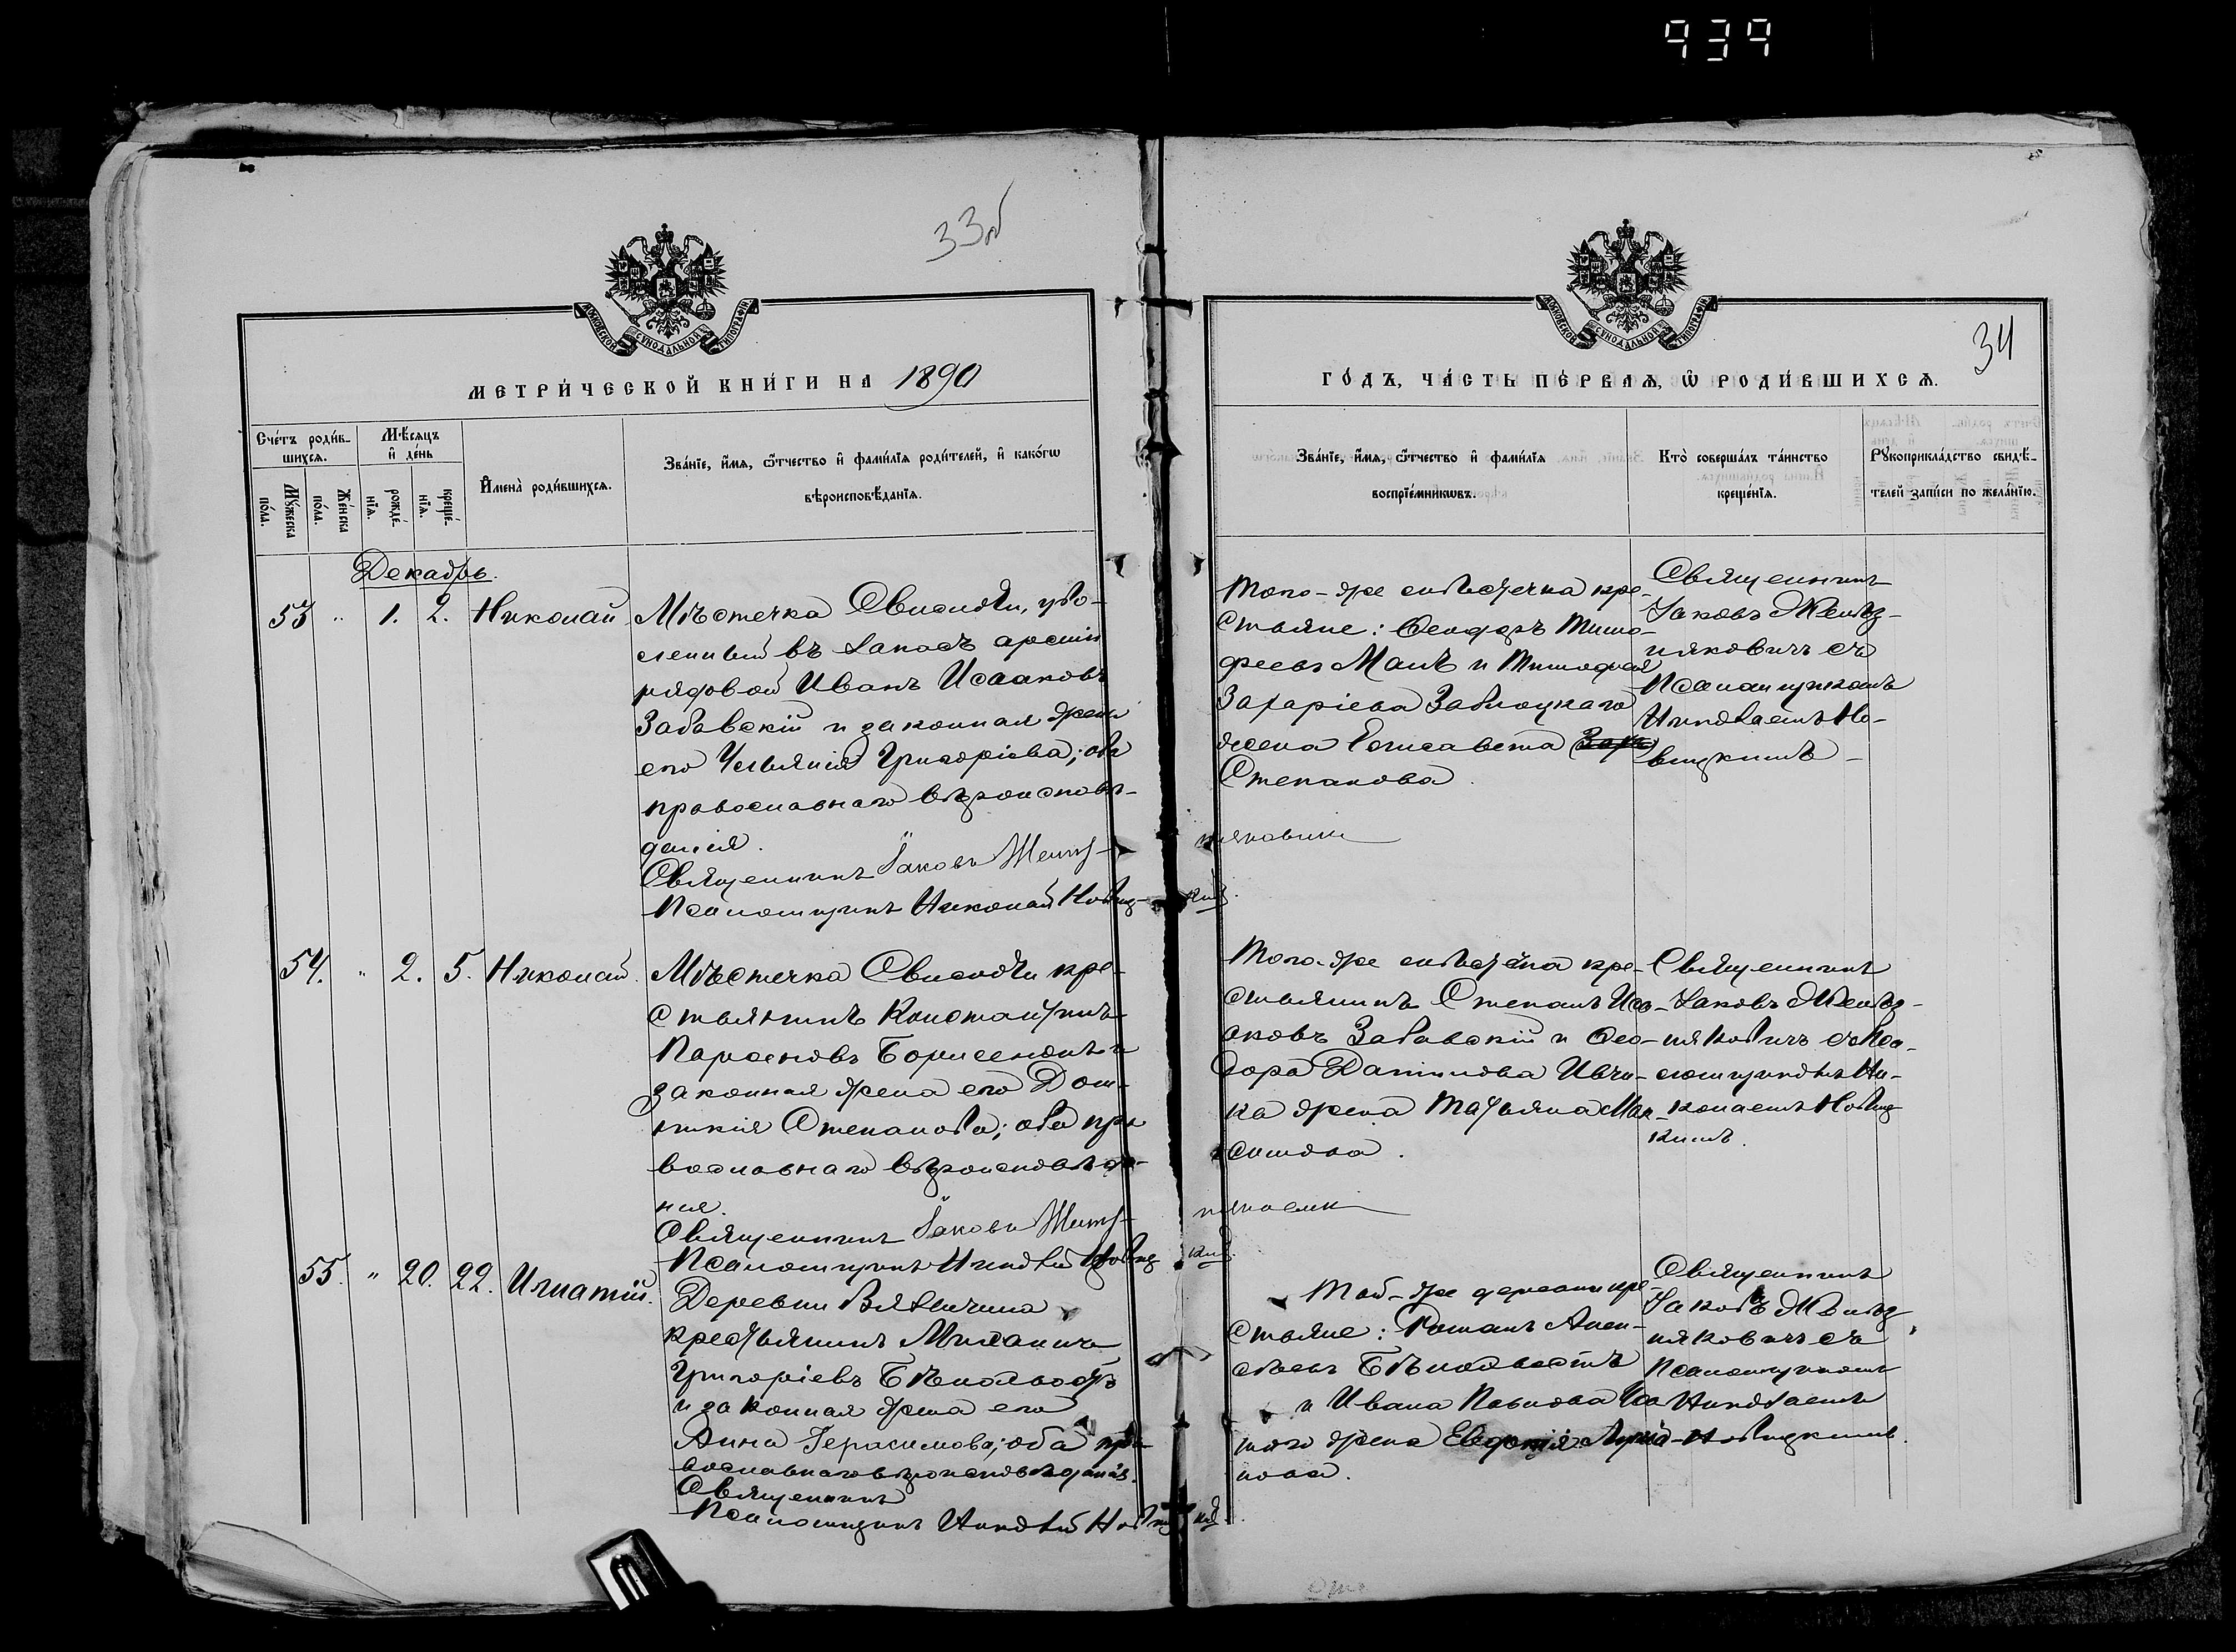 939
33об
МОСКОВСКОЙ СУНОДАЛЬНОЙ ТИПОГРАФІИ
МЕТРИ́ЧЕСКОЙ КНИ́ГИ НА 1890
Сче́тъ роди́в-
шихсѧ.
Мѣ́сѧцъ
и҆ де́нь
Мꙋ́жеска
по́ла.
Же́нска
по́ла.
рожде́-
нїѧ.
креще́-
нїѧ.
И҆мена̀ роди́вшихсѧ.
Зва́нїе, и҆́мѧ, ѻ҆́тчество и҆ фами́лїѧ роди́телей, и҆ како́гѡ
вѣроисповѣ́данїѧ.
Декабрь.
53 " 1. 2. Николай
Мѣстечка Свислочи, уво-
ленный въ запасъ арміи
рядовой Иванъ Исааковъ
Забавскій и законная жена
его Ульянія Григоріева; оба
православнаго вѣроисповѣ-
данія.
Священникъ Іаковъ Желѣз-
няковичъ
Псаломщикъ Николай Новиц-
кій.
54. " 2. 5. Николай.
Мѣстечка Свислочи кре-
стьянинъ Константинъ
Борисенокъ и
законная жена его Дом-
никія Степанова; оба пра-
вославнаго вѣроисповѣда-
нія.
Священникъ Іаковъ Желѣз-
няковичъ
Псаломщикъ Николай Новиц-
кій.
55. " 20. 22. Игнатій.
Деревни
крестьянинъ
Григоріевъ
и законная жена его
Анна Герасимова; оба пра-
вославнаго вѣроисповѣданія.
Священникъ
Псаломщикъ Николай Новиц-
кій.
34
МОСКОВСКОЙ СУНОДАЛЬНОЙ ТИПОГРАФІИ
ГО́ДЪ, ЧА́СТЬ ПЕ́РВАѦ, Ѡ҆ РОДИ́ВШИХСѦ.
Зва́нїе, и҆́мѧ, ѻ҆́тчество и҆ фами́лїѧ
воспрїе́мникѡвъ.
Кто̀ соверша́лъ та́инство
креще́нїѧ.
Рꙋкоприкла́дство свидѣ́-
телей за́писи по жела́нїю.
Того-же мѣстечка кре-
стьяне: Ѳеодоръ Тимо-
феевъ и Тимофея
Захаріева Заблоцкаго
жена Елисавета
Степанова.
Священникъ
Іаковъ Желѣз-
няковичъ съ
Псаломщикомъ
Николаемъ Но-
вицкимъ
Того-же мѣстечка кре-
стьянинъ Степанъ Иса-
аковъ Забавскій и Ѳео-
дора Данилова Ивчи-
ка жена Татьяна Мак-
симова.
Священникъ
Іаковъ Желѣз-
няковичъ съ Пса-
ломщикомъ Ни-
колаемъ Новиц-
кимъ.
Той-же деревни кре-
стьяне: Романъ Алек-
сѣевъ
и Ивана Павлова
жена Евдокія
нова.
Священникъ
Іаковъ Желѣз-
няковичъ съ
Псаломщикомъ
Николаемъ
Новицкимъ.